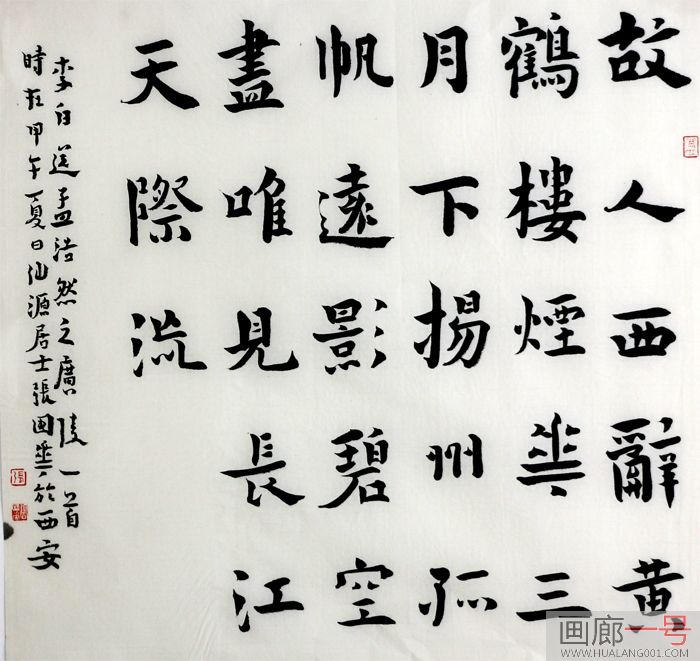 故人西辭黄
鶴樓煙華三
月下揚州孤
帆遠影碧空
盡唯見長江
天際流
李白送孟浩然之廣陵一首
時在甲午夏日仙源居士張国華於西安
画廊一号
WWW.HUALANG001.COM